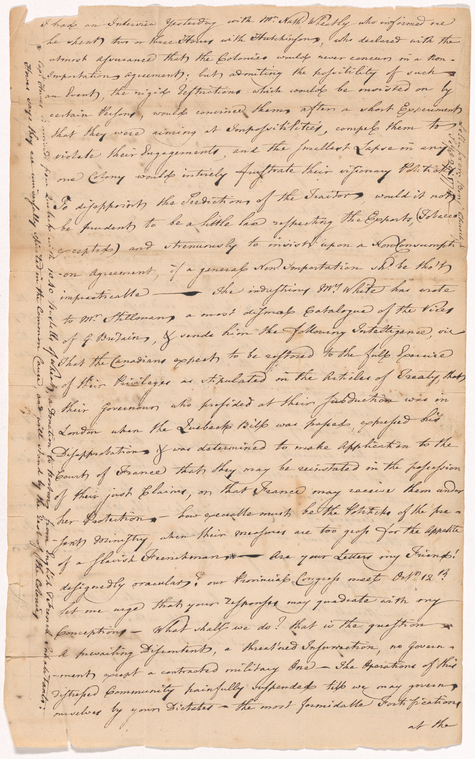 I had an Interview Yesterday with Mr. Nath Wheatly, who informed me
he spent two or three Hours with Hutchinson, who declared with the
utmost assurance that the Colonies would never concur in a Non-
Importation Agreement; but admiting the possibility of such
an Event, the rigid Restrictions which would be insisted on by
certain Persons, would convince them after a short Experiment
that they were aiming at Impossibilities, compell them to
violate their Engagements, and the smallest Lapse in any
one Colony would intirely frustrate their visionary Politicks
To disappoint the Predictions of the Traitor, would it not
be prudent to be a little lax respecting the Exports, (Tobacco
excepted) and strenuously to insist upon a Non Consumpti-
on Agreement, if a general Non Importation shd. be tho't
impracticable — The industrious Mr. White has wrote
to Mr. Stillman a most dismal Catalogue of the Vices
of G Britain, & sends him the following Intelligence viz
That the Canadians expect to be restored to the full Exercise
of their Privileges as stipulated in the Articles of Treaty, that
their Governour who presided at their subduction was in
London when the Quebeck Bill was passed, expressed his
Disapprobation & was determined to make Application to the
Court of France that they may be reinstated in the possession
of their just Claims, or that France may receive them under
her Protection — how execrable must be the Politicks of the pre-
sent Ministry, when their measures are too gross for the Appetite
of a slavish Frenchman — Are your Letters my Friend!
designedly oracular? our Provincial Congress meet Octr. 12th
let me urge that your responses may quadrate with my
Conceptions — What shall we do? that is the question —
A prevailing Discontent, a threatned Information, no Govern-
ment except a contracted military One — The Operations of this
distressed Community painfully suspended till we may govern
ourselves by your Dictates — the most formidable Fortifications
at the
from Quebeck with 1000 Bushells of Wheat, a Donation to Boston, from English & French Inhabitants;
says they are universally interested in the Common Cause and will stand by the rest of the Colonies